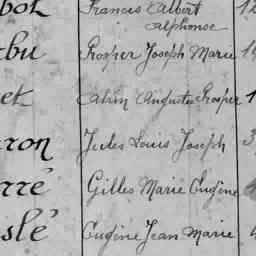 bot Francis Albert 12
Alphonse
ebu Prosper Joseph Marie
et Augustin Prosper 1
ron Jules Louis Joseph 3
rré Gilles Marie Eugène
slé Eugène Jean Marie